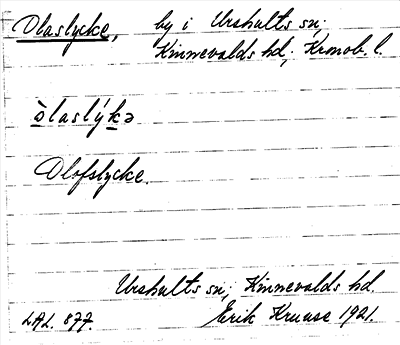 Olaslycke, by i Urshults sn;
Kinnevalds hd, Kronob. l.
òlaslýkə
Olofslycke.
Urshults sn, Kinnevalds hd.
LAL. 877. Erik Kruuse 1921.